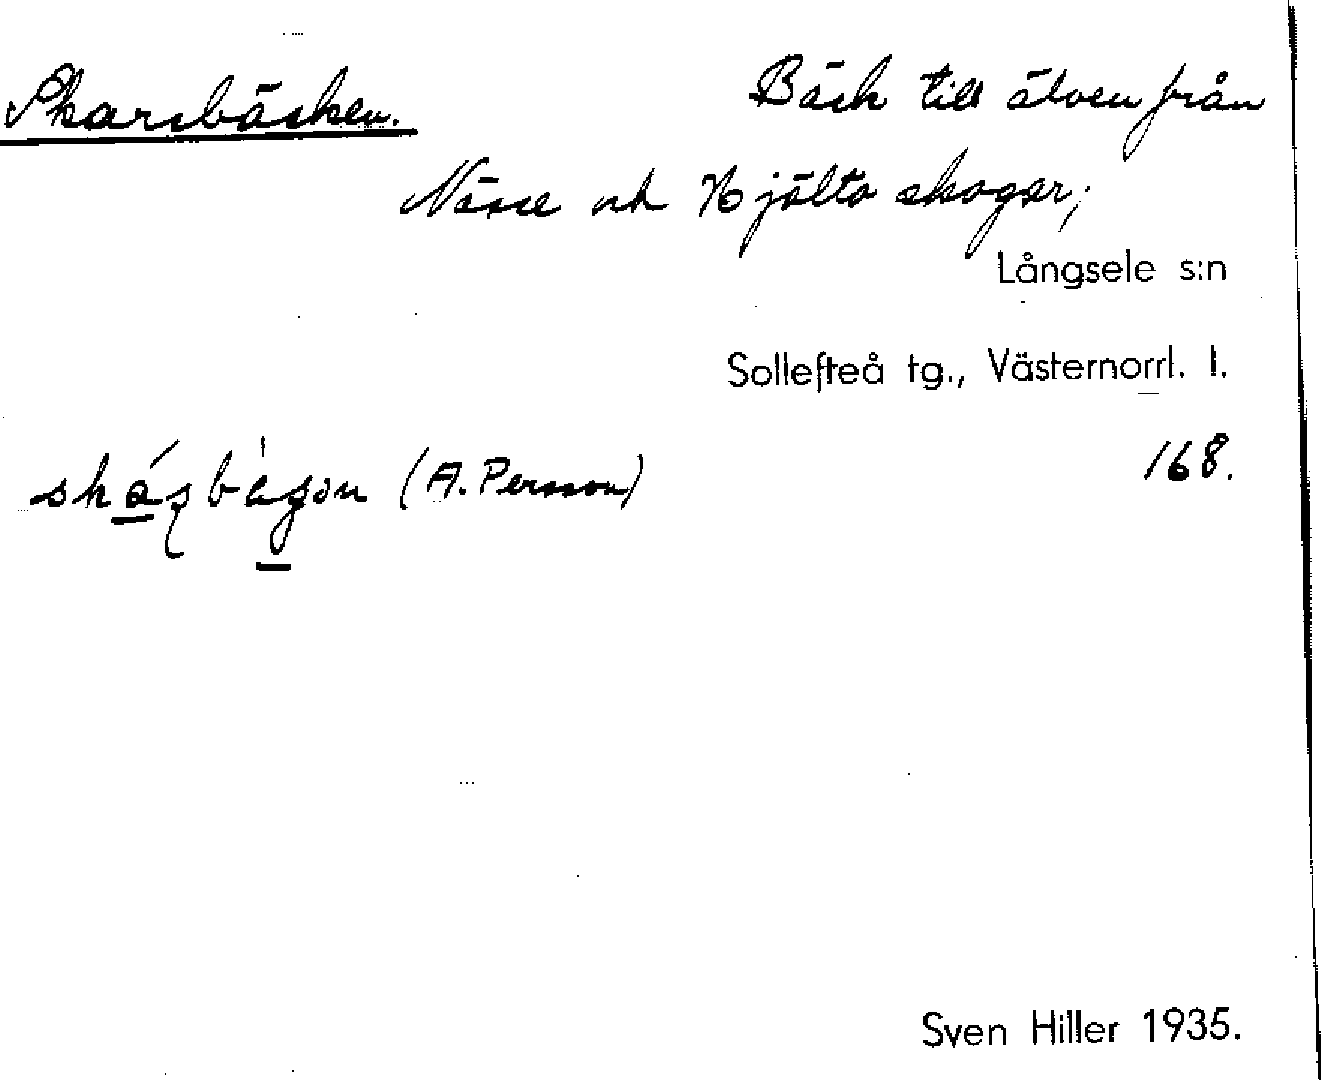 Skarsbäcken. Bäck till älven från
Nässe och Hjälta skogar;
Långsele s:n
Sollefteå tg., Västernorrl. l.
168.
(A. Persson)
Sven Hiller 1935.